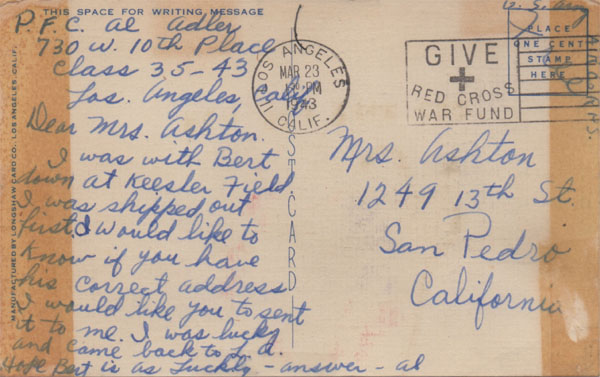 THIS SPACE FOR WRITING MESSAGE
P.F.C. Al Adler
730 W. 10th Place
Class 35-43
Los. Angeles, Calif
Dear Mrs. Ashton.
I was with Bert
down at Keesler Field.
I was shipped out
first. I would like to
know if you have
his correct address
I would like you to sent
it to me. I was lucky
and came back to L.A.
Hope Bert is as Luckly - answer - al
MANUFACTURED BY LONGSHAW CARD CO., LOS ANGELES, CALIF.
POST CARD
LOS ANGELES
MAR 23
PM
1943
CALIF.
GIVE
RED CROSS
WAR FUND
U.S. Army
PLACE
ONE CENT
STAMP
HERE
Mrs. Ashton
1249 13th St.
San Pedro
California